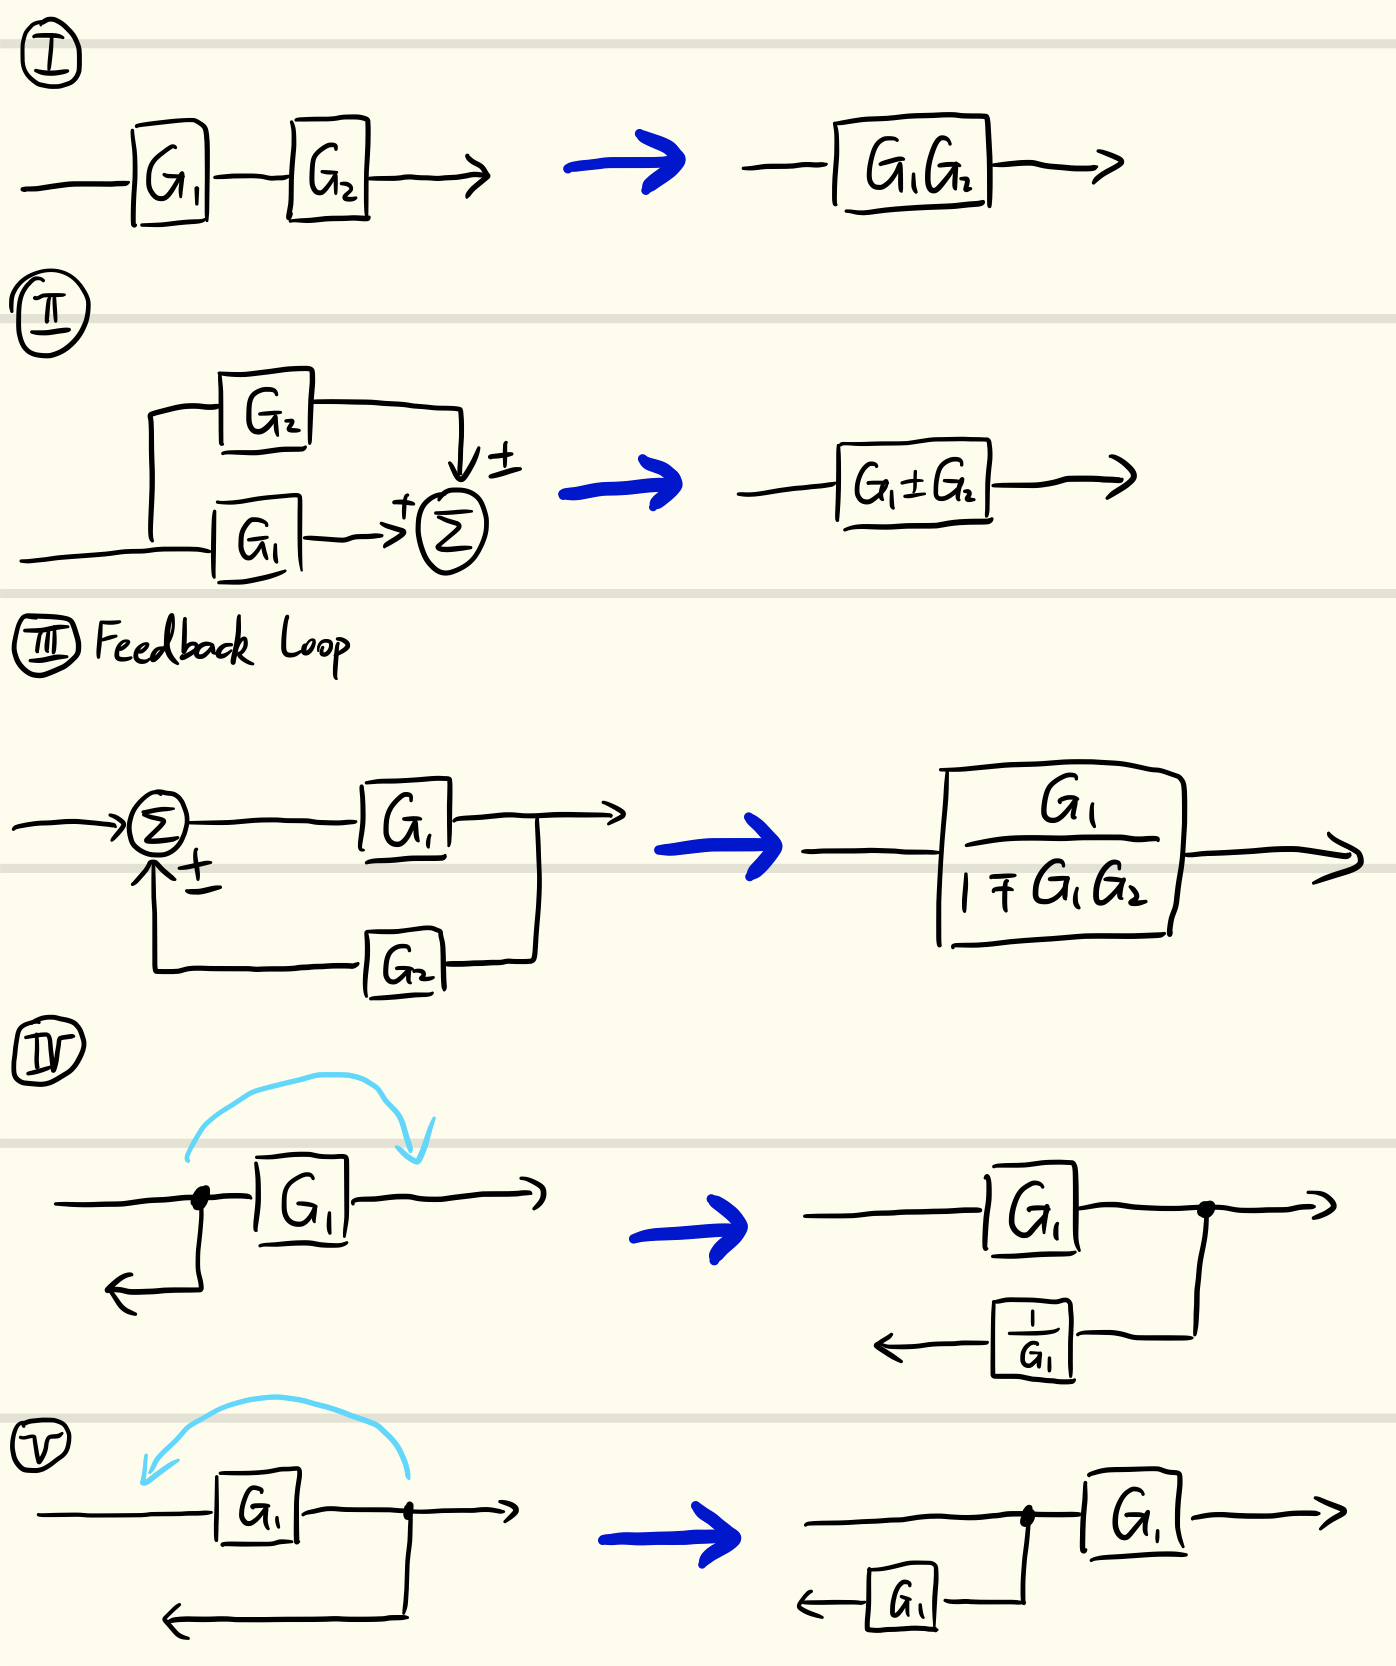 I
G₁ G₂ G₁G₂
II
G₂
±
+
G₁ Σ G₁ ± G₂
III Feedback Loop
Σ G₁ G₁
± 1 ∓ G₁G₂
G₂
IV
G₁ G₁
1
G₁
V
G₁ G₁
G₁